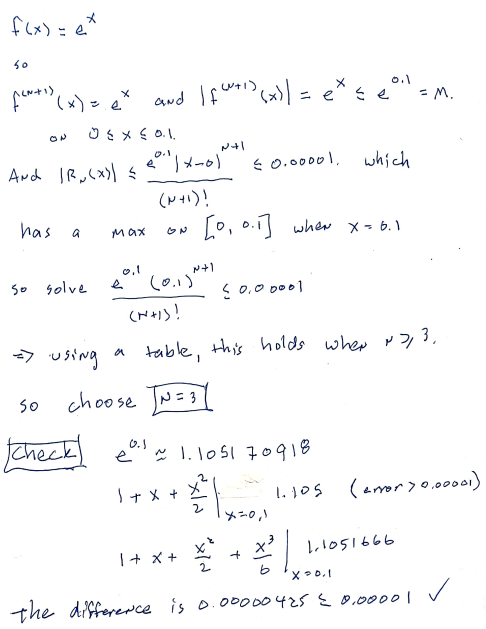 f(x) = e^x
so
f^(N+1)(x) = e^x and |f^(N+1)(x)| = e^x ≤ e^0.1 = M.
on 0 ≤ x ≤ 0.1.
And |R_N(x)| ≤ e^0.1 |x-0|^N+1 / (N+1)! ≤ 0.00001. which
has a max on [0, 0.1] when x = 0.1
so solve e^0.1 (0.1)^N+1 / (N+1)! ≤ 0.00001
=> using a table, this holds when N ≥ 3.
so choose N = 3
Check e^0.1 ≈ 1.105170918
1 + x + x^2/2 |x=0.1 1.105 (error > 0.00001)
1 + x + x^2/2 + x^3/6 |x=0.1 1.1051666
the difference is 0.00000425 ≤ 0.00001 ✓